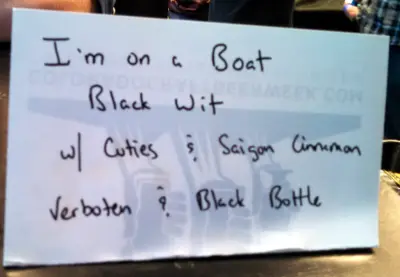 I'm on a Boat
Black Wit
w/ Cuties & Saigon Cinnamon
Verboten & Black Bottle